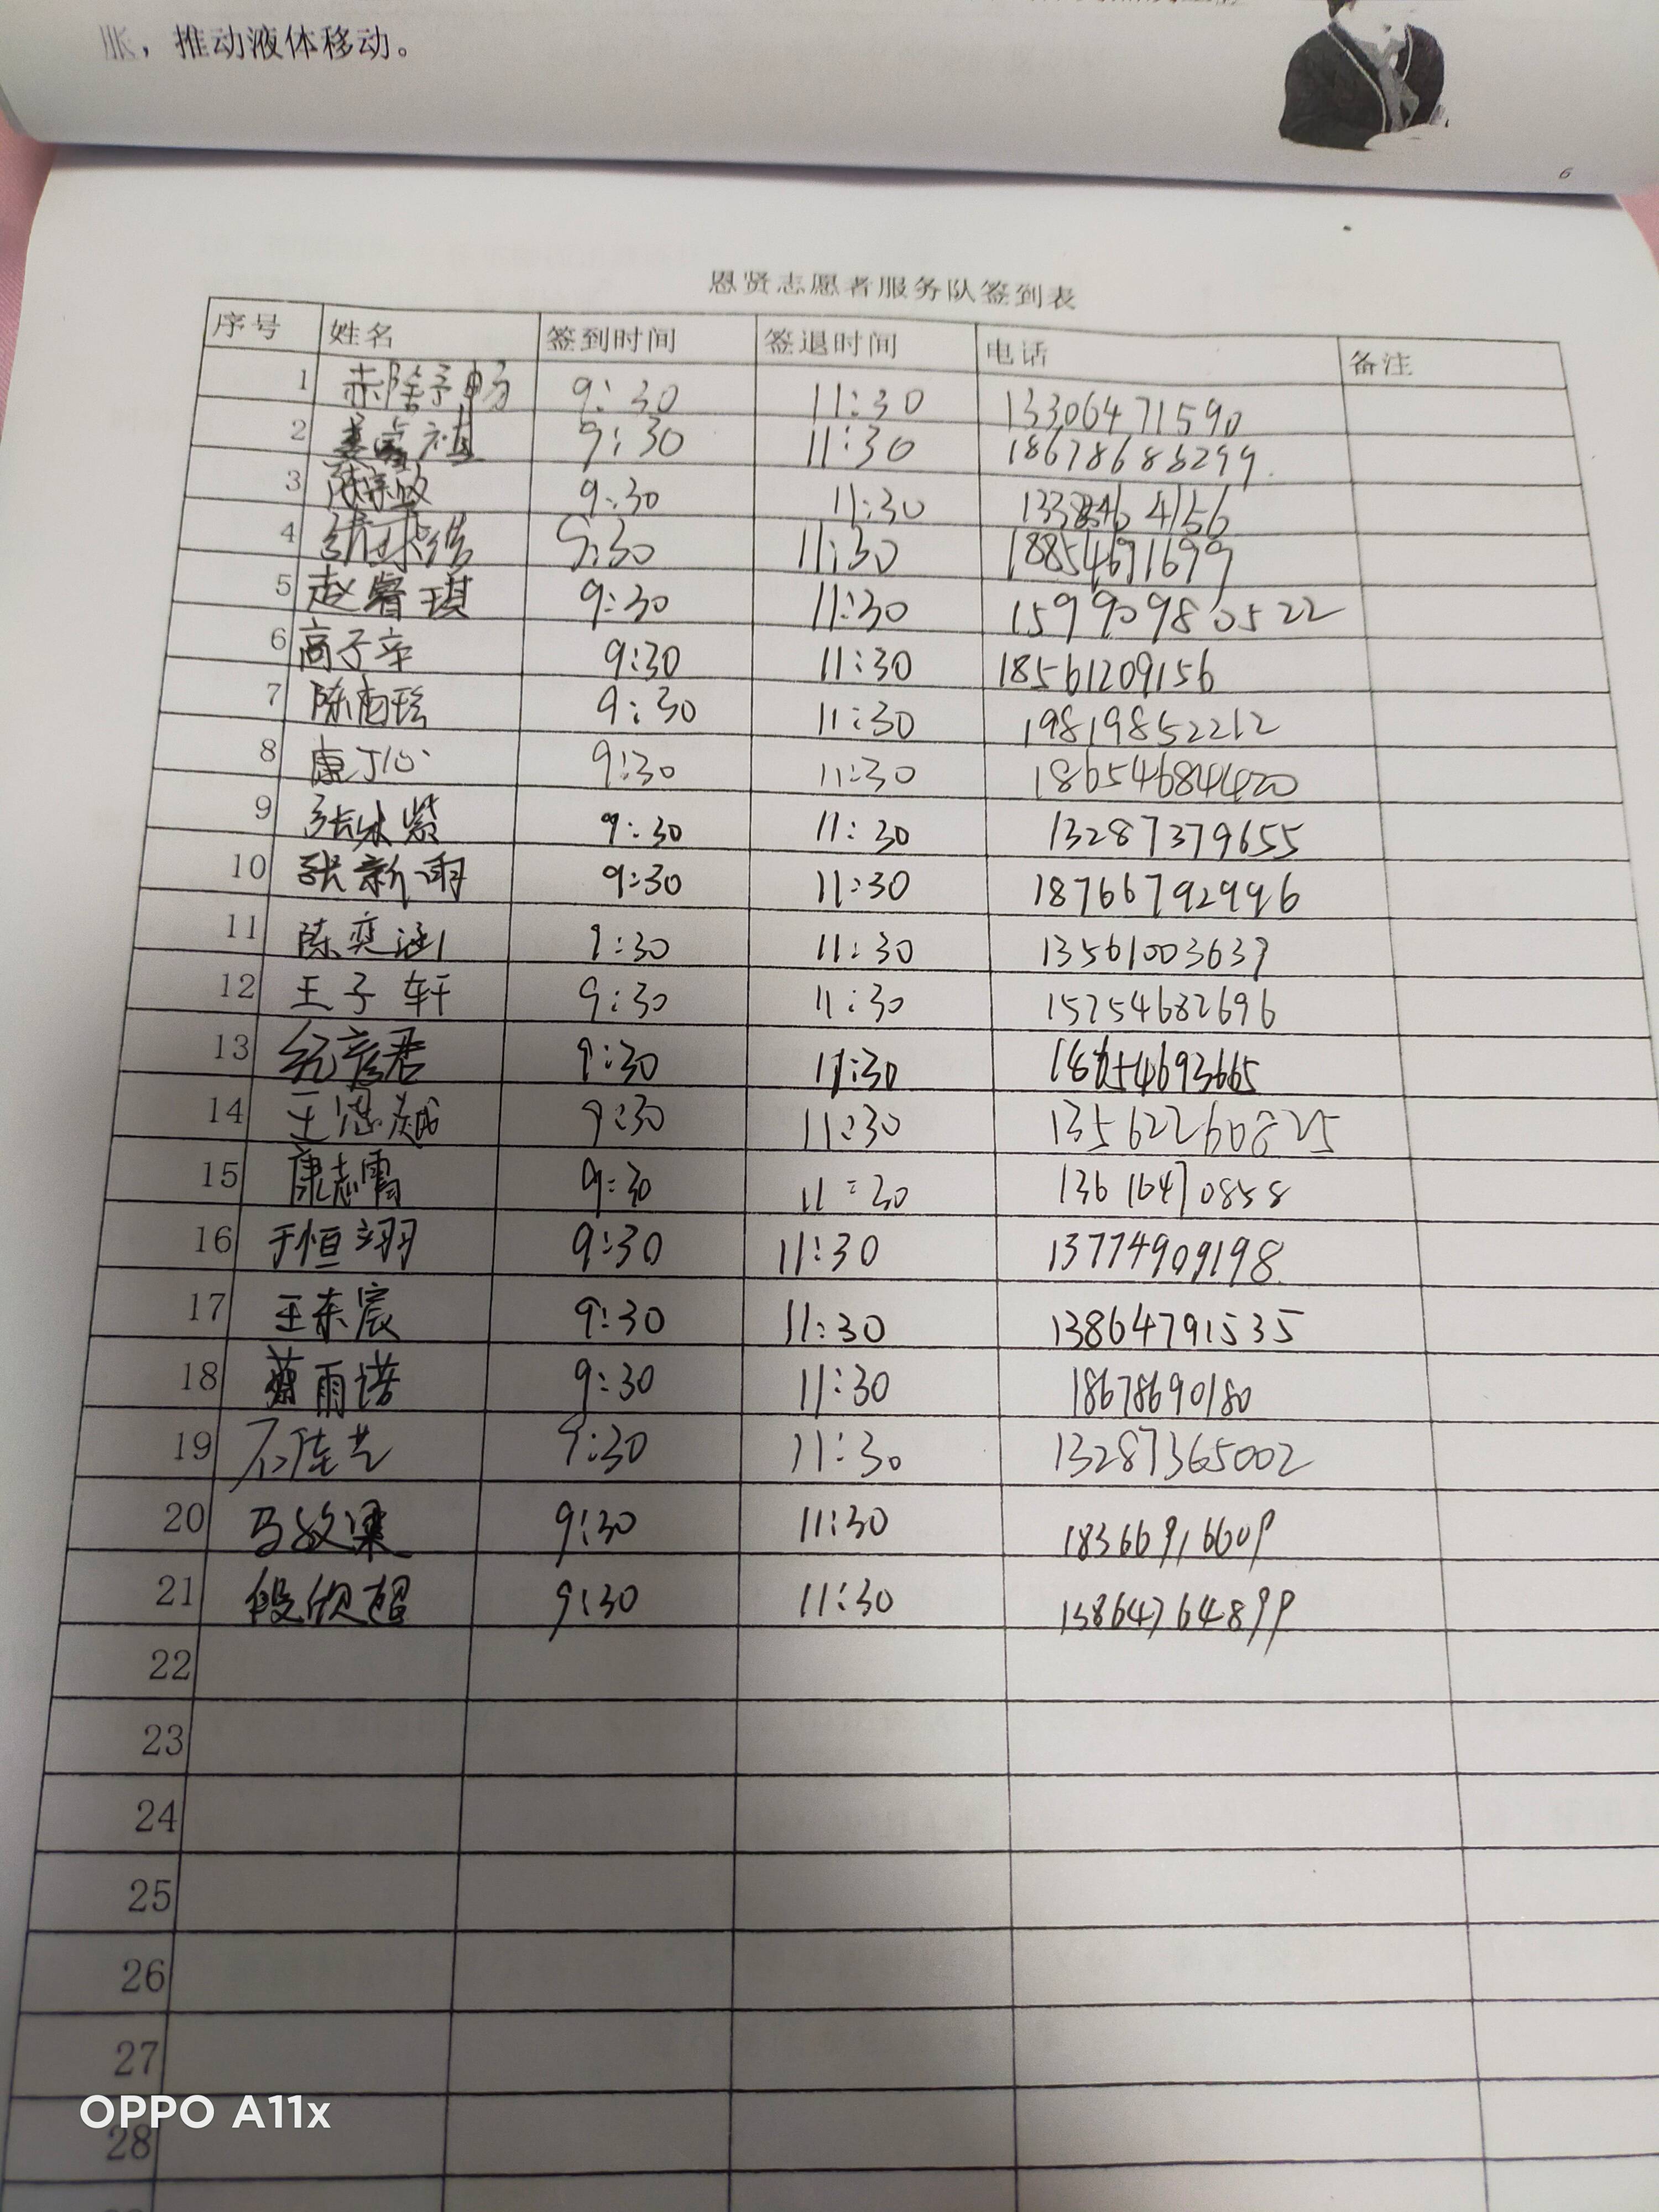 胀，推动液体移动。
6
恩贤志愿者服务队签到表
序号 姓名 签到时间 签退时间 电话 备注
1 9:30 11:30 13306471590
2 9:30 11:30 18678688299
3 9:30 11:30
4 9:30 11:30 18854691699
5 赵睿琪 9:30 11:30
6 高子辛 9:30 11:30 18561209156
7 9:30 11:30 19819852212
8 康丁心 9:30 11:30 18654684420
9 张冰紫 9:30 11:30 13287379655
10 张新雨 9:30 11:30 18766792996
11 陈奕涵 9:30 11:30 13561003639
12 王子轩 9:30 11:30 15254682696
13 纪彦君 9:30 11:30
14 9:30 11:30 13562260825
15 康志霄 9:30 11:30 13616470858
16 于恒翊 9:30 11:30 13774909198
17 王东宸 9:30 11:30 13864791535
18 雨诺 9:30 11:30 18678690180
19 石佳艺 9:30 11:30 13287365002
20 马效果 9:30 11:30 18366916609
21 段欣超 9:30 11:30 13864764899
22
23
24
25
26
27
28
OPPO A11x